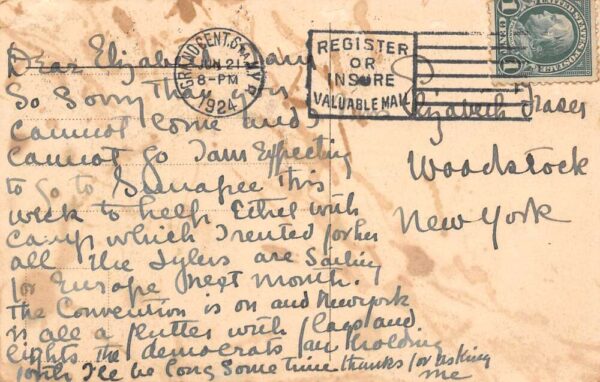 Dear Elizabeth
So sorry that you
cannot come and I
cannot go I am Expecting
to go to Sunapee this
week to help Ethel with
camp which I rented for her
all the Tylers are Sailing
for Europe next month.
The Convention is on and New York
is all a flutter with flags and
lights the democrats are holding
forth I'll be long some time thanks for asking
me
GRAND CENT. STA. N.Y.
JUN 21
8-PM
1924
REGISTER
OR
INSURE
VALUABLE MAIL
1 1
Elizabeth Fraser
Woodstock
New York